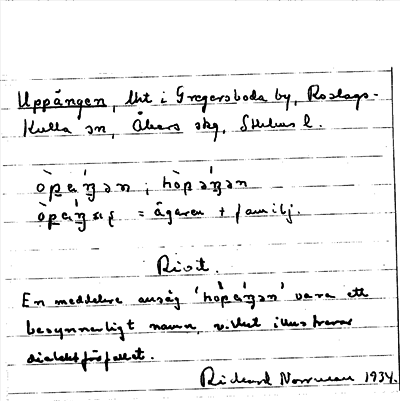 Uppängen, lht i Gregersboda by, Roslags-
Kulla sn, Åkers skg, Sthlms l.
òpäŋən ; hòpəŋən
òpäŋ = ägaren + familj.
Riot.
En meddelare ansåg 'hòpäŋən' vara ett
besynnerligt namn, vilket illustrerar
dialektförfallet.
Rickard Norrman 1934.